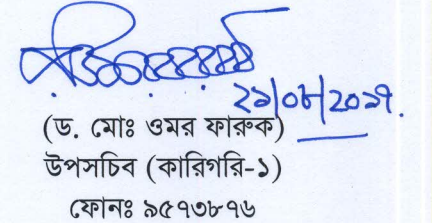 ২১|০৮|২০১৭.
(ড. মোঃ ওমর ফারুক)
উপসচিব (কারিগরি-১)
ফোনঃ ৯৫৭৩৮৭৬